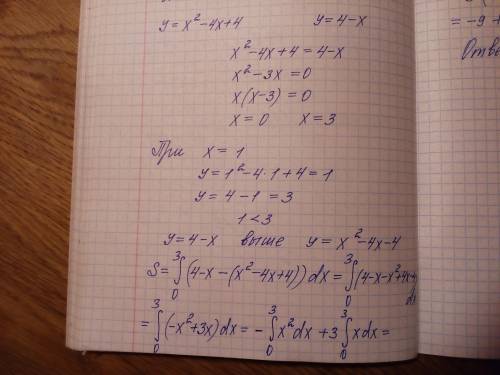 y = x² - 4x + 4 y = 4 - x
x² - 4x + 4 = 4 - x
x² - 3x = 0
x(x - 3) = 0
x = 0 x = 3
При x = 1
y = 1² - 4·1 + 4 = 1
y = 4 - 1 = 3
1 < 3
y = 4 - x выше y = x² - 4x - 4
S = ∫₀³ (4 - x - (x² - 4x + 4)) dx = ∫₀³ (4 - x - x² + 4x + 4
dx
= ∫₀³ (-x² + 3x) dx = - ∫₀³ x² dx + 3 ∫₀³ x dx =
= -9 +
Отве